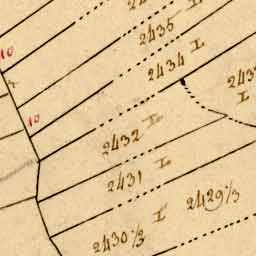 2435 L
10
2434 L
10
2432 L
2431 L
L
2429 1/3
L
2430 1/3